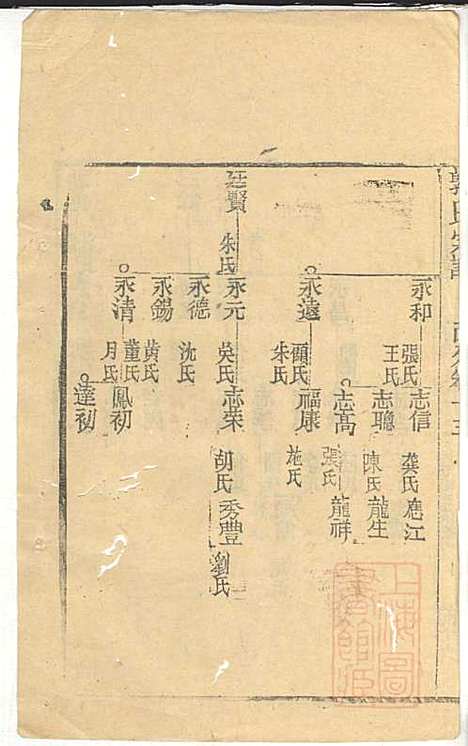 永和
張氏
王氏
志信
龔氏
應江
志聰
陳氏
龍生
志高
張氏
龍祥
永遠
顧氏
朱氏
福康
施氏
廷賢
朱氏
永元
吳氏
志榮
胡氏
秀豐
劉氏
永德
沈氏
永錫
黃氏
永清
董氏
月氏
鳳初
達初
上海圖
書館藏